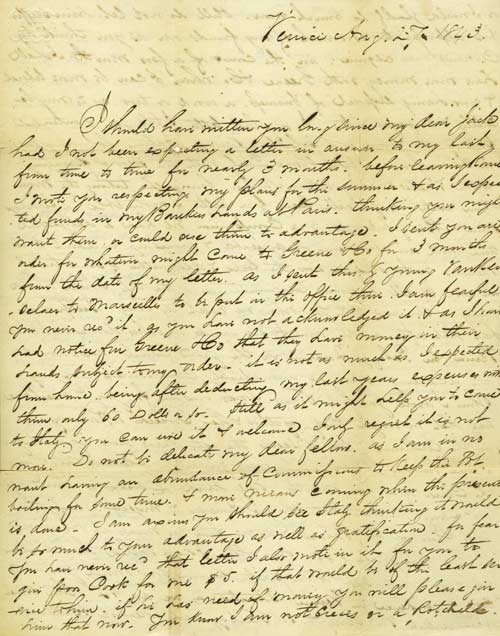 Venice Aug. 27. 1843.
I should have written you long since my dear Jack
had I not been expecting a letter in answer to my last
from time to time for nearly 3 months. before leaving
I wrote you respecting my plans for the summer & as I expec
ted funds in my Bankers hands at Paris. thinking you might
want them or could use them to advantage. I sent you an
order for whatever might come to Greene & Co for 3 months
from the date of my letter. As I sent this by young
to Marseilles to be put in the office there. I am fearful
you never rec^d it. as you have not acknowledged it & as I have
had notice from Greene & Co that they have money in their
hands subject to my order. it is not as much as I expected
from home. being after deducting my last years expenses
there only 60 Dolls or so. Still as it might help you to come
to Italy you can use it & welcome I only regret it is not
more. Do not be delicate my dear fellow. as I am in no
want having an abundance of Commissions to keep the Pot
boiling for some time. & more means coming when the present
is done. I am anxious you should see Italy thinking it would
be so much to your advantage as well as gratification. for fear
you have never rec^d that letter I also wrote in it for you to
give poor Cook for me $5. if that would be of the least ser
vice to him. if he has need of money you will please give
him that now. You know I am not Cresus or a Rotchild